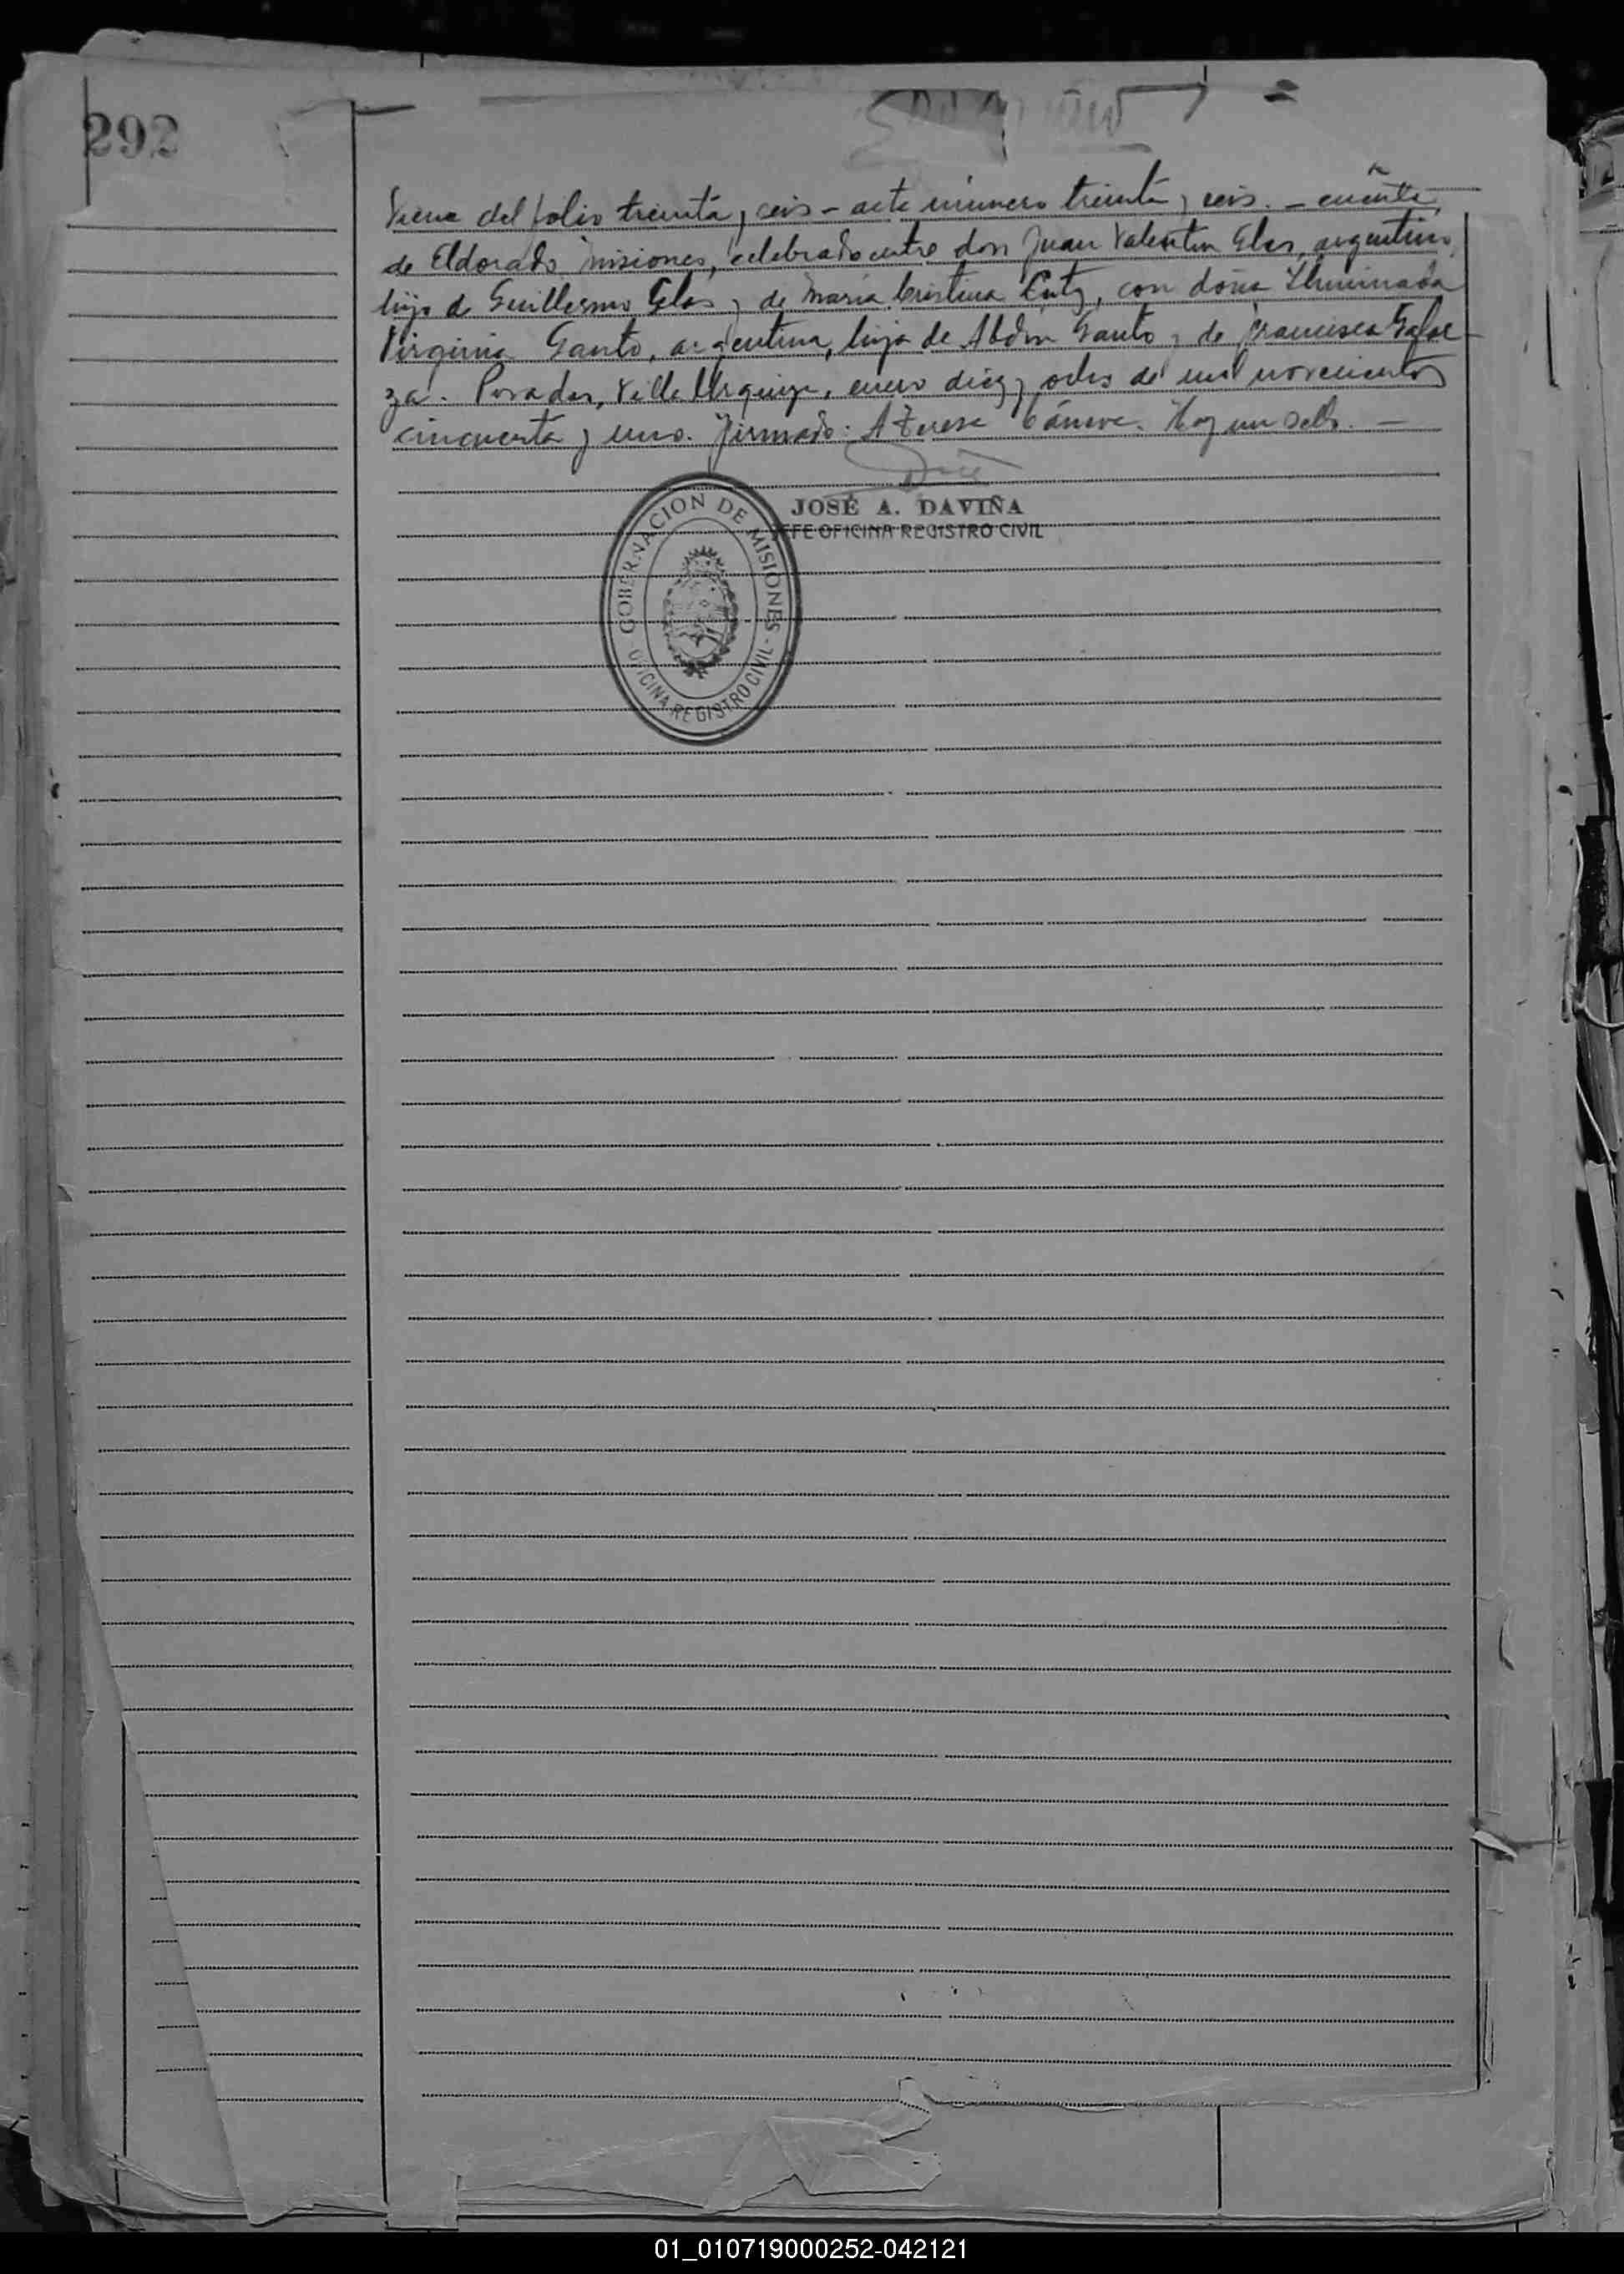 292
Viene del folio treinta y seis - acta número treinta y seis. -
de Eldorado Misiones, celebrado entre don Juan Valentin Elas, argentino,
hijo de Guillermo Elas y de María Cristina Lutz, con doña Iluminada
Virginia Santo, argentina, hija de Abdón Santo y de Francisca Galar-
za. Posadas, Villa Urquiza, enero diez y ocho de mil novecientos
cincuenta y uno. Firmado: A Hay un sello. -
JOSÉ A. DAVIÑA
JEFE OFICINA REGISTRO CIVIL
GOBERNACION DE MISIONES -
OFICINA REGISTRO CIVIL
01_010719000252-042121